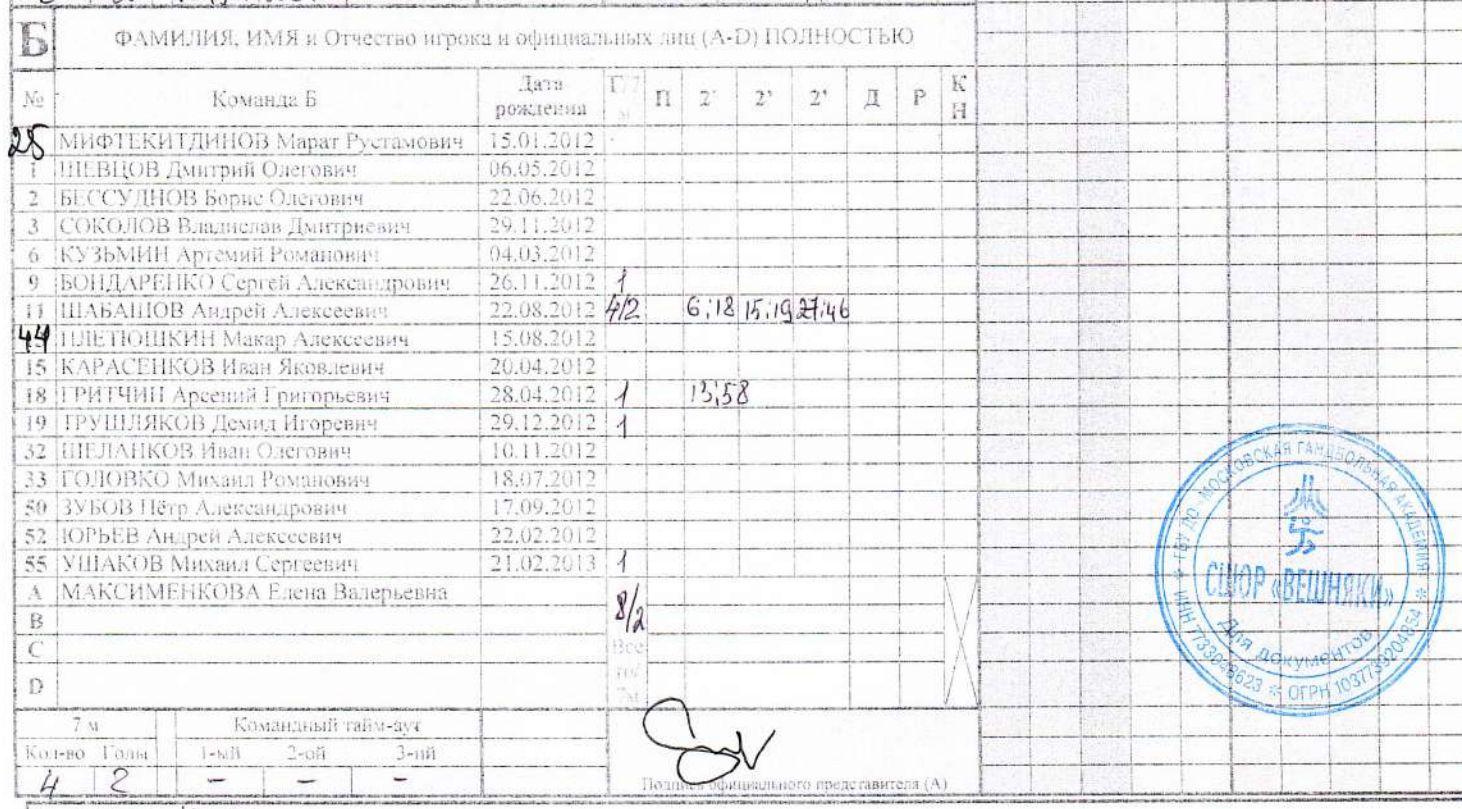 Б ФАМИЛИЯ, ИМЯ и Отчество игрока и официальных лиц (A-D) ПОЛНОСТЬЮ
№ Команда Б Дата рождения Г/7 м П 2' 2' 2' Д Р К Н
25 МИФТЕКИТДИНОВ Марат Рустамович 15.01.2012
1 ШЕВЦОВ Дмитрий Олегович 06.05.2012
2 БЕССУДНОВ Борис Олегович 22.06.2012
3 СОКОЛОВ Владислав Дмитриевич 29.11.2012
6 КУЗЬМИН Артемий Романович 04.03.2012
9 БОНДАРЕНКО Сергей Александрович 26.11.2012 1
11 ШАБАШОВ Андрей Алексеевич 22.08.2012 4/2 6:18 15:19 27:46
44 ПЛЕТЮШКИН Макар Алексеевич 15.08.2012
15 КАРАСЕНКОВ Иван Яковлевич 20.04.2012
18 ГРИТЧИН Арсений Григорьевич 28.04.2012 1 13:58
19 ГРУШЛЯКОВ Демид Игоревич 29.12.2012 1
32 ШЕЛАНКОВ Иван Олегович 10.11.2012
33 ГОЛОВКО Михаил Романович 18.07.2012
50 ЗУБОВ Пётр Александрович 17.09.2012
52 ЮРЬЕВ Андрей Алексеевич 22.02.2012
55 УШАКОВ Михаил Сергеевич 21.02.2013 1
A МАКСИМЕНКОВА Елена Валерьевна
B 8/2
C Все
D го/ 7м
7 м Командный тайм-аут
Кол-во Голы 1-ый 2-ой 3-ий
4 2 - - -
Подпись официального представителя (A)
ГБУ ДО МОСКОВСКАЯ ГАНДБОЛЬНАЯ АКАДЕМИЯ
СШОР «ВЕШНЯКИ»
Для документов